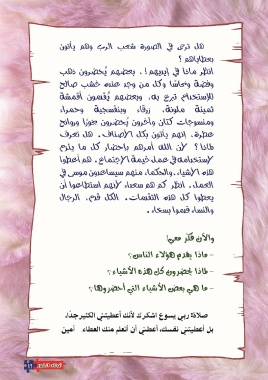 هل ترى في الصورة شعب الرب وهم يأتون
بعطاياهم؟
انظر ماذا في أيديهم!. بعضهم يُحضرون ذهب
وفضة ونحاسًا وكل من وجد عنده خشب صالح
للإستخدام تبرع به. وبعضهم يُقدمون أقمشة
ثمينة ملونة. زرقاء وبنفسجية وحمراء
ومنسوجات كتان وآخرون يُحضرون بخورًا وروائح
عطرة. إنهم يأتون بكل الأصناف. هل تعرف
لماذا؟ لأن الله أمرهم بإحضار كل ما يلزم
لإستخدامه في عمل خيمة الاجتماع. هم أعطوا
هذه الأشياء، والحكماء منهم سيساعدون موسى في
العمل. انظر كم هم سعداء لأنهم استطاعوا أن
يعطوا كل هذه التقدمات. الكل فرح، الرجال
والنساء قدموا بسخاء.
والآن فكر معي:
- ماذا يقدم هؤلاء الناس؟
- لماذا يُحضرون كل هذه الأشياء؟
- ما هي بعض الأشياء التي أحضروها؟
صلاة: ربي يسوع أشكرك لأنك أعطيتني الكثير جدًا،
بل أعطيتني نفسك، أعطني أن أتعلم منك العطاء. آمين